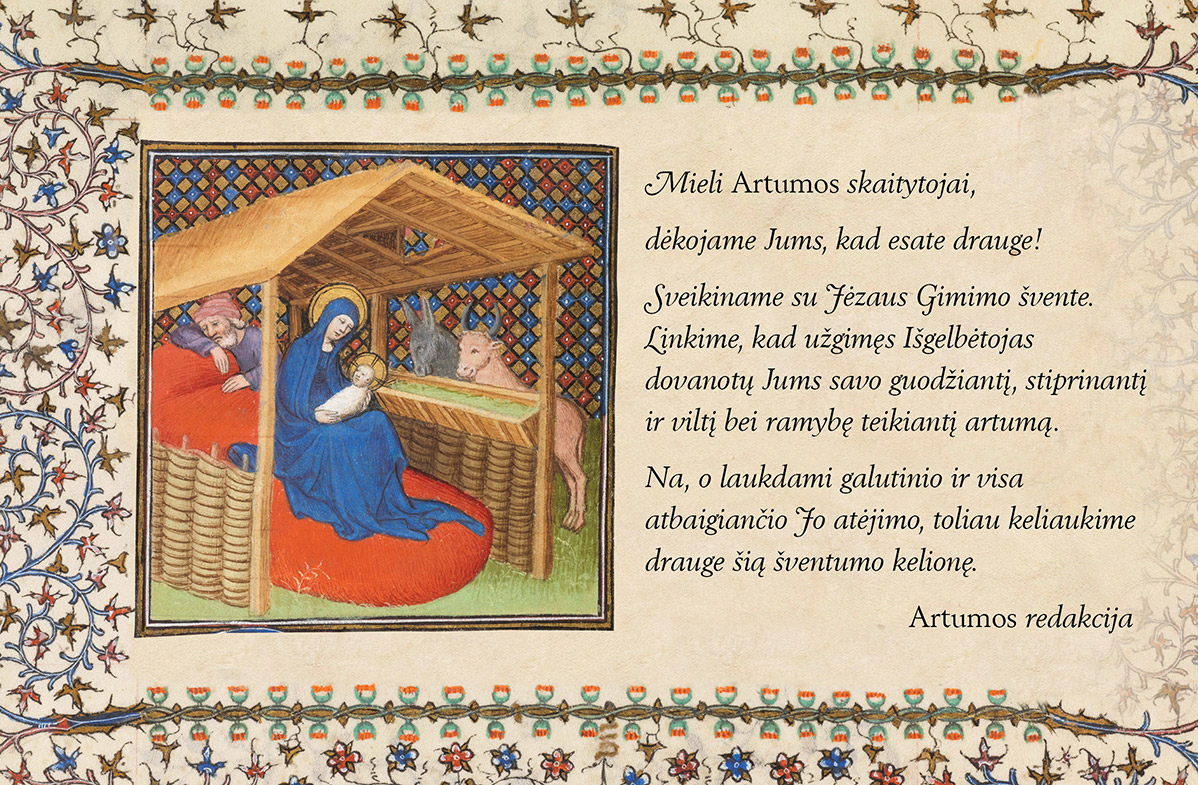 Mieli Artumos skaitytojai,
dėkojame Jums, kad esate drauge!
Sveikiname su Jėzaus Gimimo švente.
Linkime, kad užgimęs Išgelbėtojas
dovanotų Jums savo guodžiantį, stiprinantį
ir viltį bei ramybę teikiantį artumą.
Na, o laukdami galutinio ir visa
atbaigiančio Jo atėjimo, toliau keliaukime
drauge šią šventumo kelionę.
Artumos redakcija